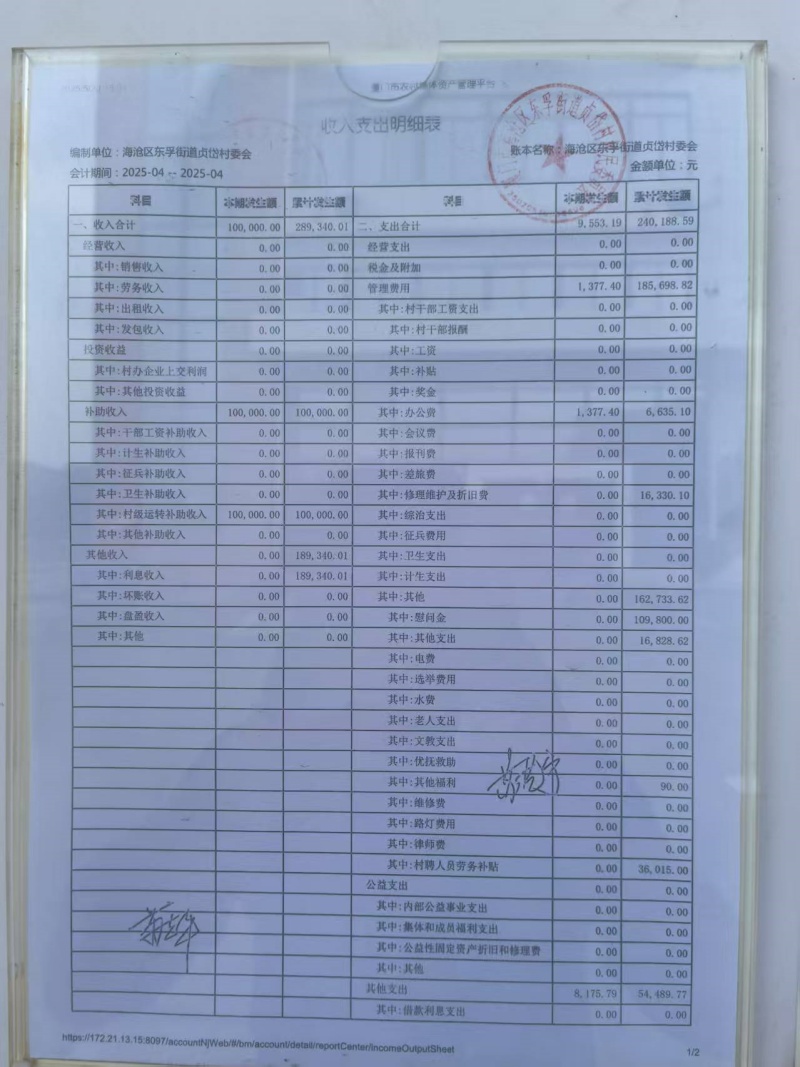 厦门市农村集体资产管理平台
收入支出明细表
编制单位：海沧区东孚街道贞岱村委会 账本名称：海沧区东孚街道贞岱村委会
会计期间：2025-04 -- 2025-04 金额单位：元
科目 本期发生额 累计发生额 科目 本期发生额 累计发生额
一、收入合计 100,000.00 289,340.01 二、支出合计 9,553.19 240,188.59
经营收入 0.00 0.00 经营支出 0.00 0.00
其中:销售收入 0.00 0.00 税金及附加 0.00 0.00
其中:劳务收入 0.00 0.00 管理费用 1,377.40 185,698.82
其中:出租收入 0.00 0.00 其中:村干部工资支出 0.00 0.00
其中:发包收入 0.00 0.00 其中:村干部报酬 0.00 0.00
投资收益 0.00 0.00 其中:工资 0.00 0.00
其中:村办企业上交利润 0.00 0.00 其中:补贴 0.00 0.00
其中:其他投资收益 0.00 0.00 其中:奖金 0.00 0.00
补助收入 100,000.00 100,000.00 其中:办公费 1,377.40 6,635.10
其中:干部工资补助收入 0.00 0.00 其中:会议费 0.00 0.00
其中:计生补助收入 0.00 0.00 其中:报刊费 0.00 0.00
其中:征兵补助收入 0.00 0.00 其中:差旅费 0.00 0.00
其中:卫生补助收入 0.00 0.00 其中:修理维护及折旧费 0.00 16,330.10
其中:村级运转补助收入 100,000.00 100,000.00 其中:综治支出 0.00 0.00
其中:其他补助收入 0.00 0.00 其中:征兵费用 0.00 0.00
其他收入 0.00 189,340.01 其中:卫生支出 0.00 0.00
其中:利息收入 0.00 189,340.01 其中:计生支出 0.00 0.00
其中:坏账收入 0.00 0.00 其中:其他 0.00 162,733.62
其中:盘盈收入 0.00 0.00 其中:慰问金 0.00 109,800.00
其中:其他 0.00 0.00 其中:其他支出 0.00 16,828.62
其中:电费 0.00 0.00
其中:选举费用 0.00 0.00
其中:水费 0.00 0.00
其中:老人支出 0.00 0.00
其中:文教支出 0.00 0.00
其中:优抚救助 0.00 0.00
其中:其他福利 0.00 90.00
其中:维修费 0.00 0.00
其中:路灯费用 0.00 0.00
其中:律师费 0.00 0.00
其中:村聘人员劳务补贴 0.00 36,015.00
公益支出 0.00 0.00
其中:内部公益事业支出 0.00 0.00
其中:集体和成员福利支出 0.00 0.00
其中:公益性固定资产折旧和修理费 0.00 0.00
其中:其他 0.00 0.00
其他支出 8,175.79 54,489.77
其中:借款利息支出 0.00 0.00
https://172.21.13.15:8097/accountNjWeb/#/bm/account/detail/reportCenter/incomeOutputSheet 1/2